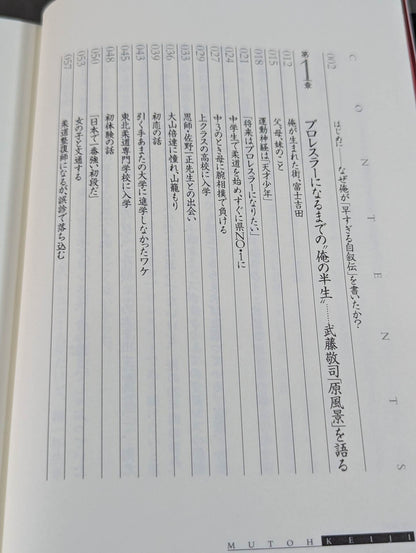 CONTENTS
002 はじめに なぜ俺が「早すぎる自叙伝」を書いたか？
第1章 プロレスラーになるまでの“俺の半生”……武藤敬司「原風景」を語る
012 俺が生まれた街、富士吉田
015 父、母、妹のこと
018 運動神経は「天才少年」
021 「将来はプロレスラーになりたい」
024 中学生で柔道を始め、すぐに県NO・1に
027 中・3のとき母に腕相撲で負ける
029 上クラスの高校に入学
033 恩師・佐野一正先生との出会い
036 大山倍達に憧れ、山籠もり
039 初恋の話
043 引く手あまたの大学に進学しなかったワケ
045 東北柔道専門学校に入学
048 初体験の話
050 「日本で一番強い初段だ」
053 女の子と文通する
057 柔道整復師になるが、誤診で落ち込む
MUTOH KEIJI